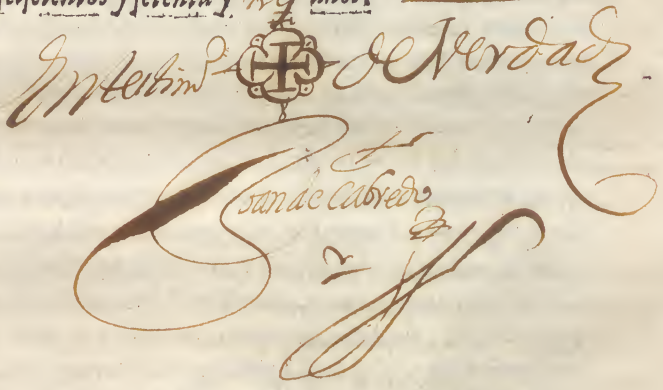 En testimº de Verdad
Joan de Cabredo